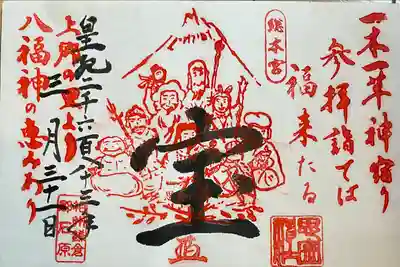 一木一草神宿り
参拝詣では
福来たる
総本宮
宝
皇紀二千六百八十三年
三月三十一日
八福神の恵みあり